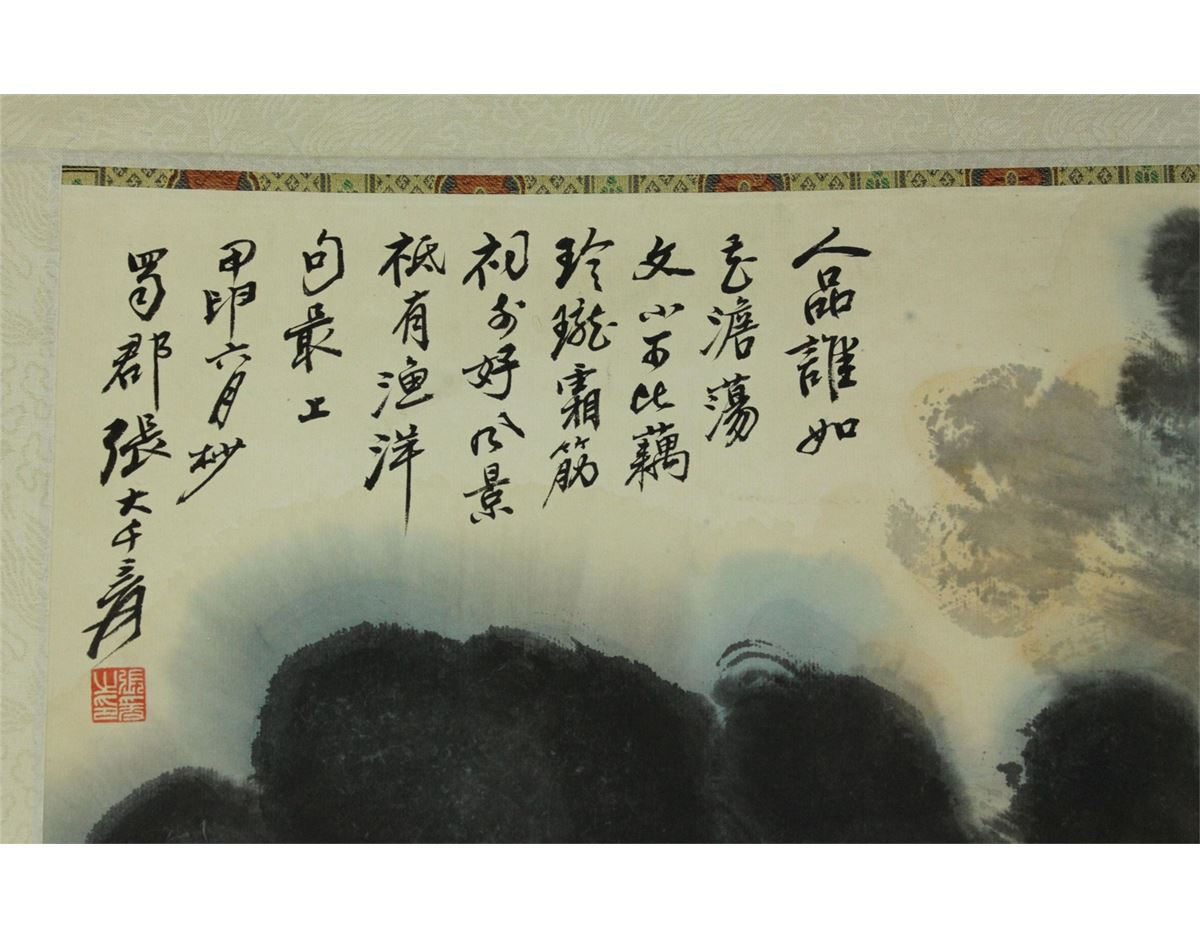 人品誰如
花澹蕩
文心不比藕
玲瓏霜筋
祠外好风景
祗有漁洋
句最上
甲申六月杪
蜀郡張大千爰
張爰之印